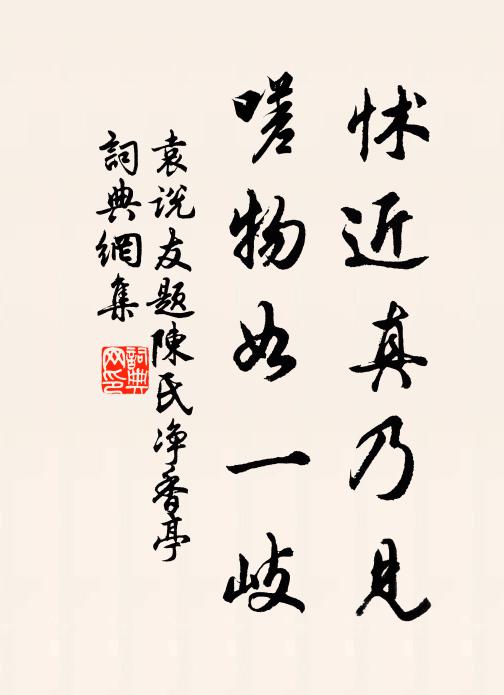 怵近真乃見
嗟物如一岐
袁说友題陳氏净香亭
詞典網集
詞典
网印